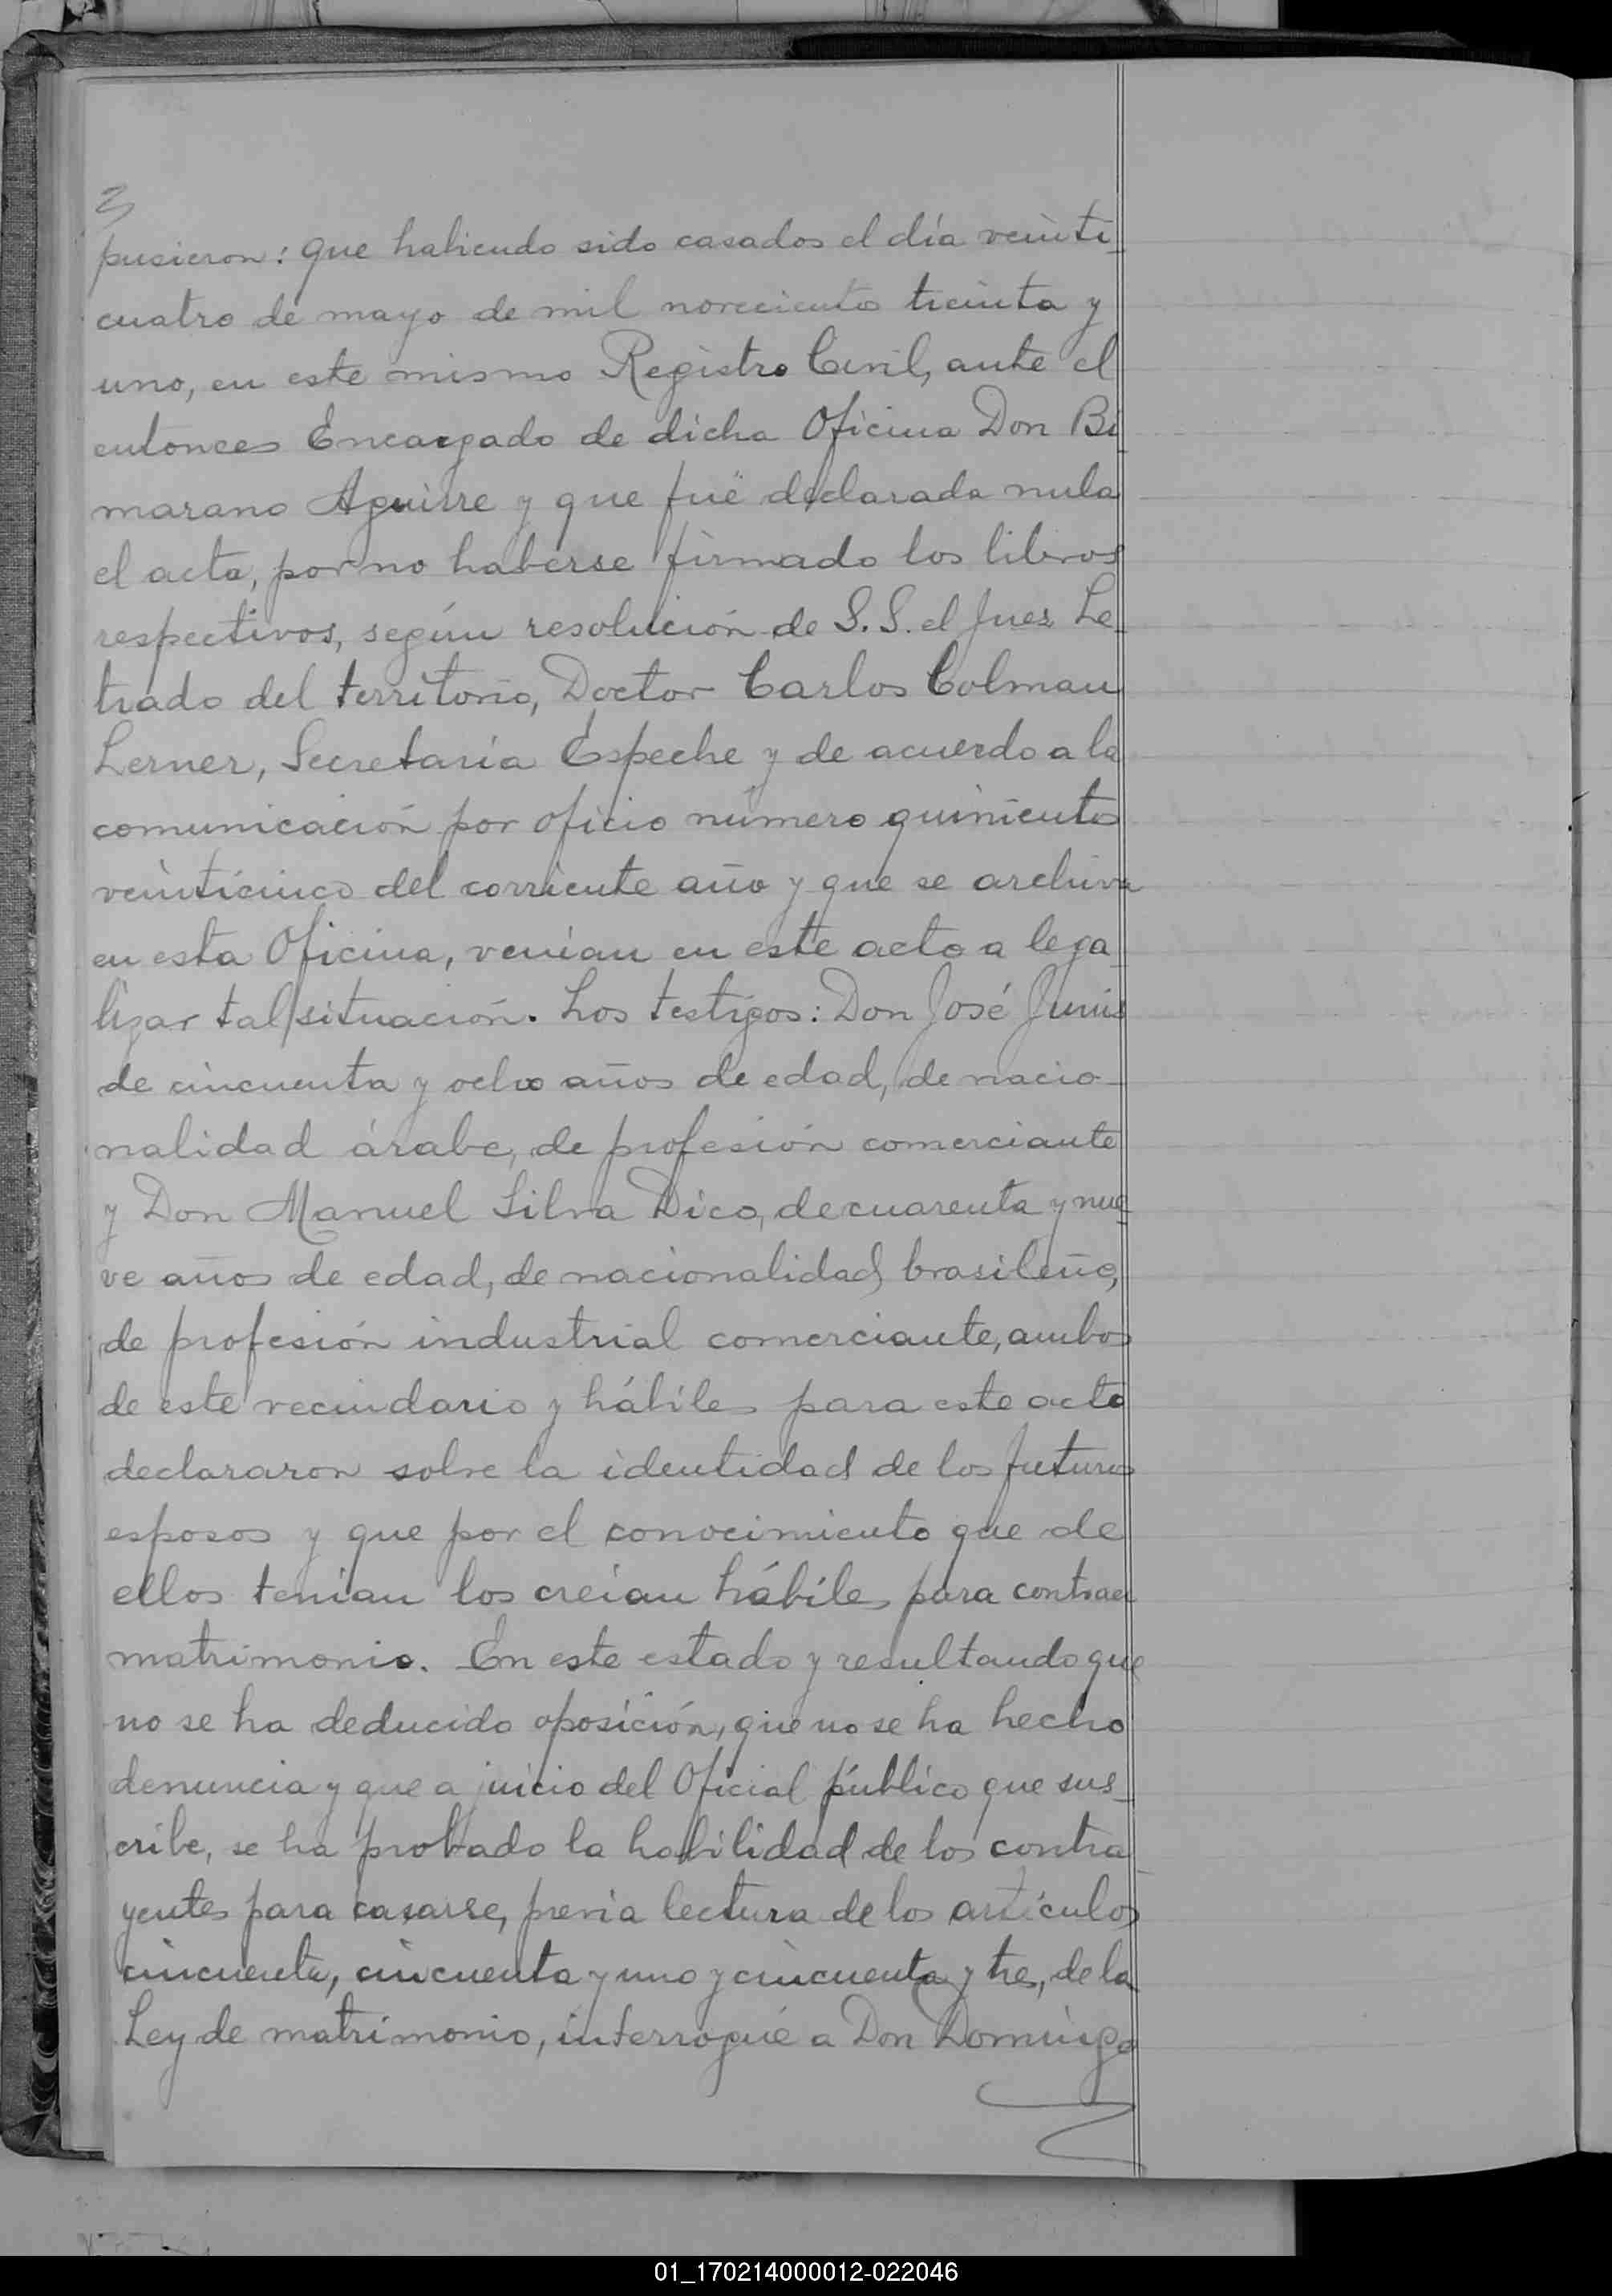 pusieron: que habiendo sido casados el día veinti-
cuatro de mayo de mil novecientos treinta y
uno, en este mismo Registro Civil, ante el
entonces Encargado de dicha Oficina Don Bi-
marano Aguirre y que fué declarada nula
el acta, por no haberse firmado los libros
respectivos, según resolución de S.S. el Juez Le-
trado del territorio, Doctor Carlos Colman
Lerner, Secretaría Espeche y de acuerdo a la
comunicación por oficio número quinientos
veinticinco del corriente año y que se archiva
en esta Oficina, venían en este acto a lega-
lizar tal situación. Los testigos: Don José Junis
de cincuenta y ocho años de edad, de nacio-
nalidad árabe, de profesión comerciante
y Don Manuel Silva Dico, de cuarenta y nue-
ve años de edad, de nacionalidad brasileño,
de profesión industrial comerciante, ambos
de este vecindario y hábiles para este acto
declararon sobre la identidad de los futuros
esposos y que por el conocimiento que de
ellos tenían los creían hábiles para contraer
matrimonio. En este estado y resultando que
no se ha deducido oposición, que no se ha hecho
denuncia y que a juicio del Oficial público que sus-
cribe, se ha probado la habilidad de los contra
yentes para casarse, previa lectura de los artículos
cincuenta, cincuenta y uno y cincuenta y tres, de la
Ley de matrimonio, interrogué a Don Domingo
01_170214000012-022046